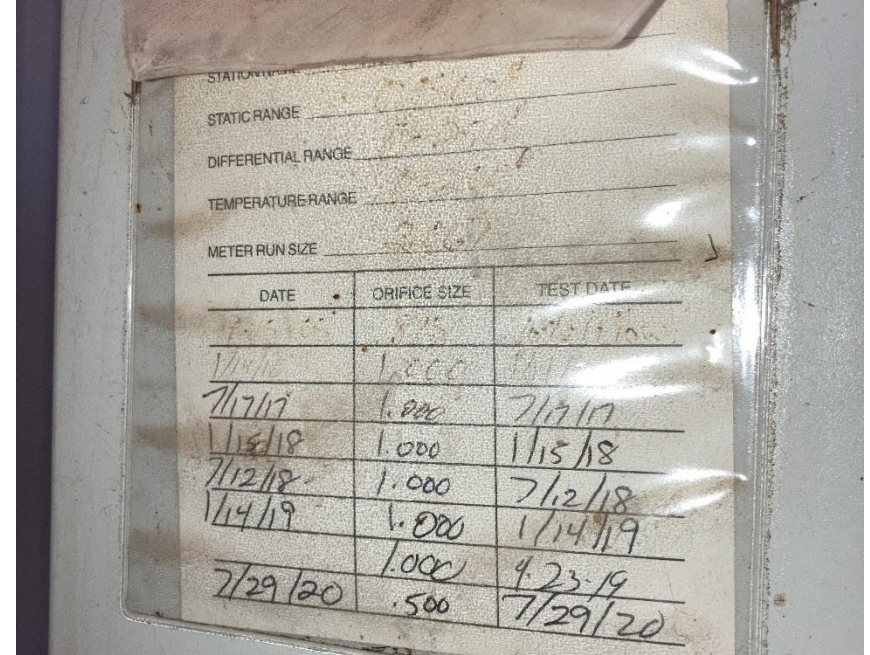 STATION NAME
STATIC RANGE
DIFFERENTIAL RANGE
TEMPERATURE RANGE
METER RUN SIZE
DATE ORIFICE SIZE TEST DATE
1.000
7/17/17 1.000 7/17/17
1/15/18 1.000 1/15/18
7/12/18 1.000 7/12/18
1/14/19 1.000 1/14/19
1.000 9-23-19
7/29/20 .500 7/29/20